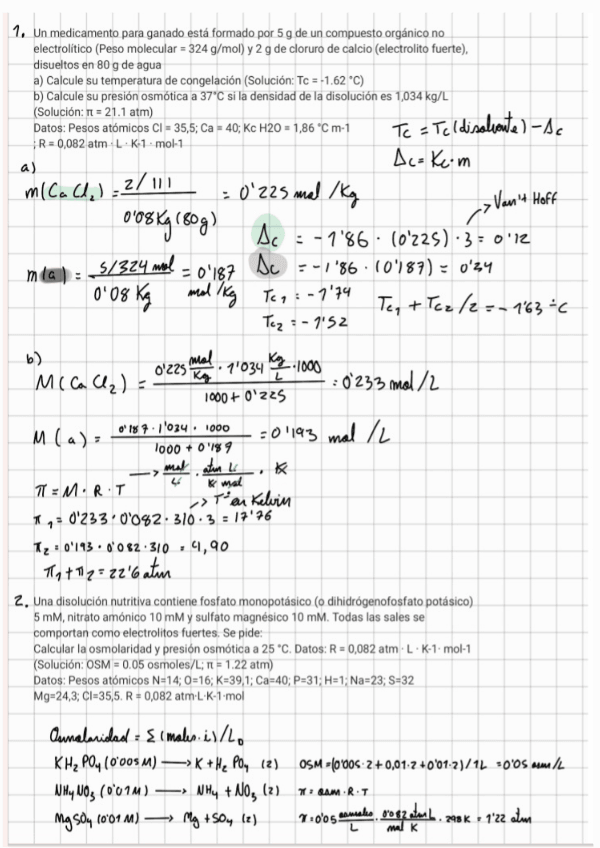 1. Un medicamento para ganado está formado por 5 g de un compuesto orgánico no
electrolítico (Peso molecular = 324 g/mol) y 2 g de cloruro de calcio (electrolito fuerte),
disueltos en 80 g de agua
a) Calcule su temperatura de congelación (Solución: Tc = -1.62 °C)
b) Calcule su presión osmótica a 37°C si la densidad de la disolución es 1,034 kg/L
(Solución: π = 21.1 atm)
Datos: Pesos atómicos Cl = 35,5; Ca = 40; Kc H2O = 1,86 °C m-1
; R = 0,082 atm · L · K-1 · mol-1
Tc = Tc (disolvente) - Δc
Δc = Kc · m
a)
m(CaCl2) = 2/111 / 0'08 Kg (80g) = 0'225 mol/Kg
→ Van't Hoff
Δc = -1'86 · (0'225) · 3 = 0'12
m(a) = 5/324 mol / 0'08 Kg = 0'187 mol/Kg
Δc = -1'86 · (0'187) = 0'34
Tc1 = -1'74
Tc2 = -1'52
Tc1 + Tc2 /2 = -1'63 °C
b)
M(CaCl2) = 0'225 mol/Kg · 1'034 Kg/L · 1000 / 1000 + 0'225 = 0'233 mol/L
M(a) = 0'187 · 1'034 · 1000 / 1000 + 0'187 = 0'193 mol/L
π = M · R · T → mol/L · atm L/K mol · K
→ Tª en Kelvin
π1 = 0'233 · 0'082 · 310 · 3 = 17'76
π2 = 0'193 · 0'082 · 310 = 4,90
π1 + π2 = 22'6 atm
2. Una disolución nutritiva contiene fosfato monopotásico (o dihidrógenofosfato potásico)
5 mM, nitrato amónico 10 mM y sulfato magnésico 10 mM. Todas las sales se
comportan como electrolitos fuertes. Se pide:
Calcular la osmolaridad y presión osmótica a 25 °C. Datos: R = 0,082 atm · L · K-1· mol-1
(Solución: OSM = 0.05 osmoles/L; π = 1.22 atm)
Datos: Pesos atómicos N=14; O=16; K=39,1; Ca=40; P=31; H=1; Na=23; S=32
Mg=24,3; Cl=35,5. R = 0,082 atm·L·K-1·mol
Osmolaridad = Σ (moles · i) / LD
KH2PO4 (0'005 M) → K + H2PO4 (2) OSM = (0'005 · 2 + 0,01 · 2 + 0'01 · 2) / 1L = 0'05 osm/L
NH4NO3 (0'01 M) → NH4 + NO3 (2) π = OSM · R · T
MgSO4 (0'01 M) → Mg + SO4 (2) π = 0'05 osmoles/L · 0'082 atm L/mol K · 298 K = 1'22 atm